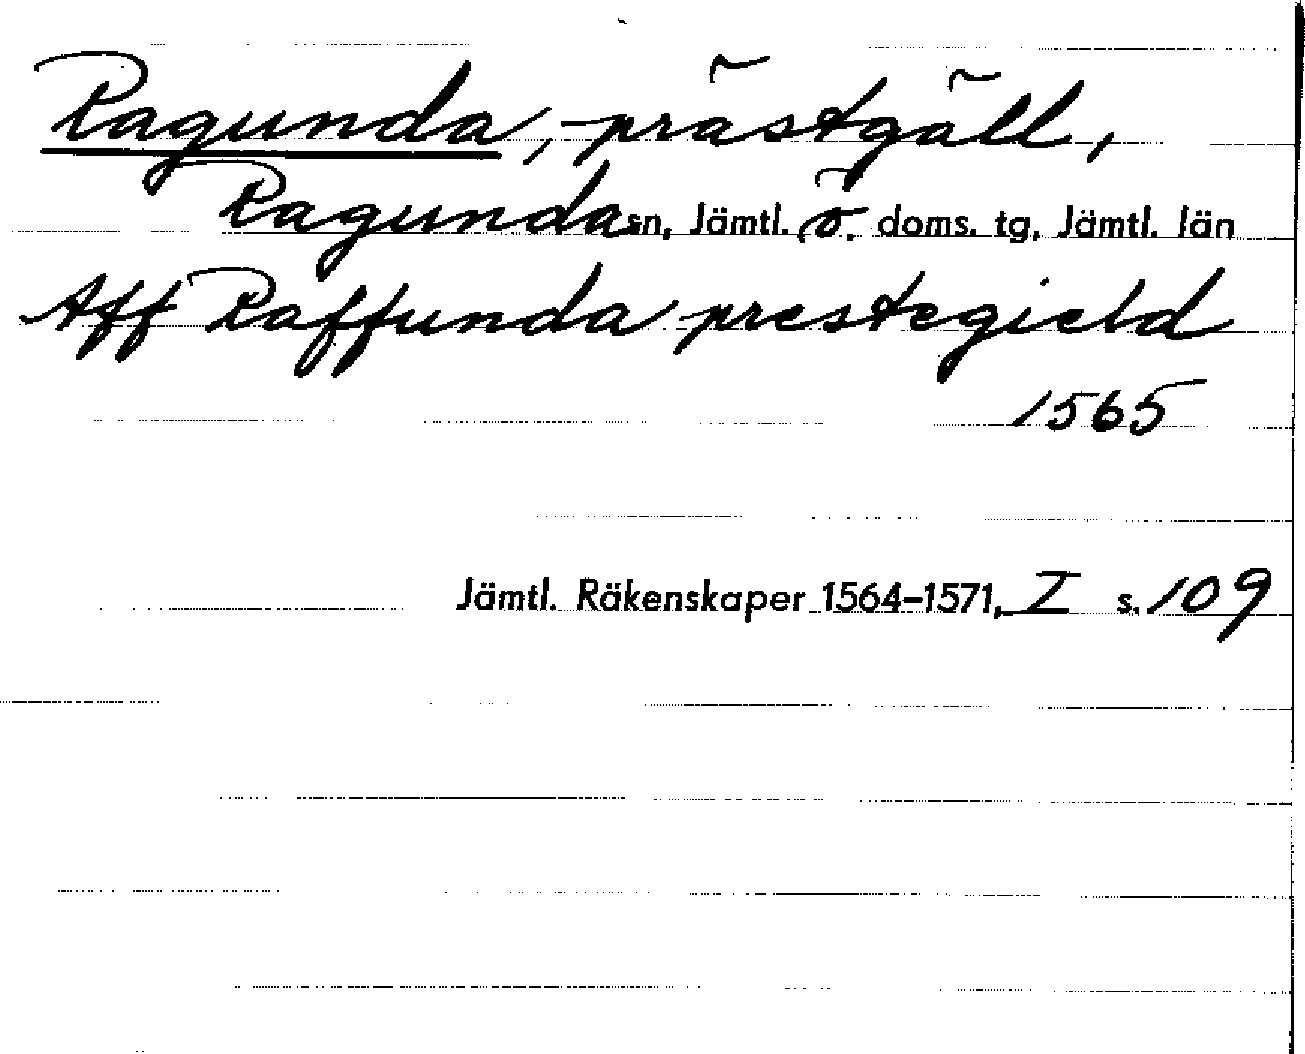 Ragunda, prästgäll,
Ragunda sn, Jämtl. ö. doms. tg, Jämtl. län
Aff Raffunda prestegield
1565
Jämtl. Räkenskaper 1564-1571, I s. 109